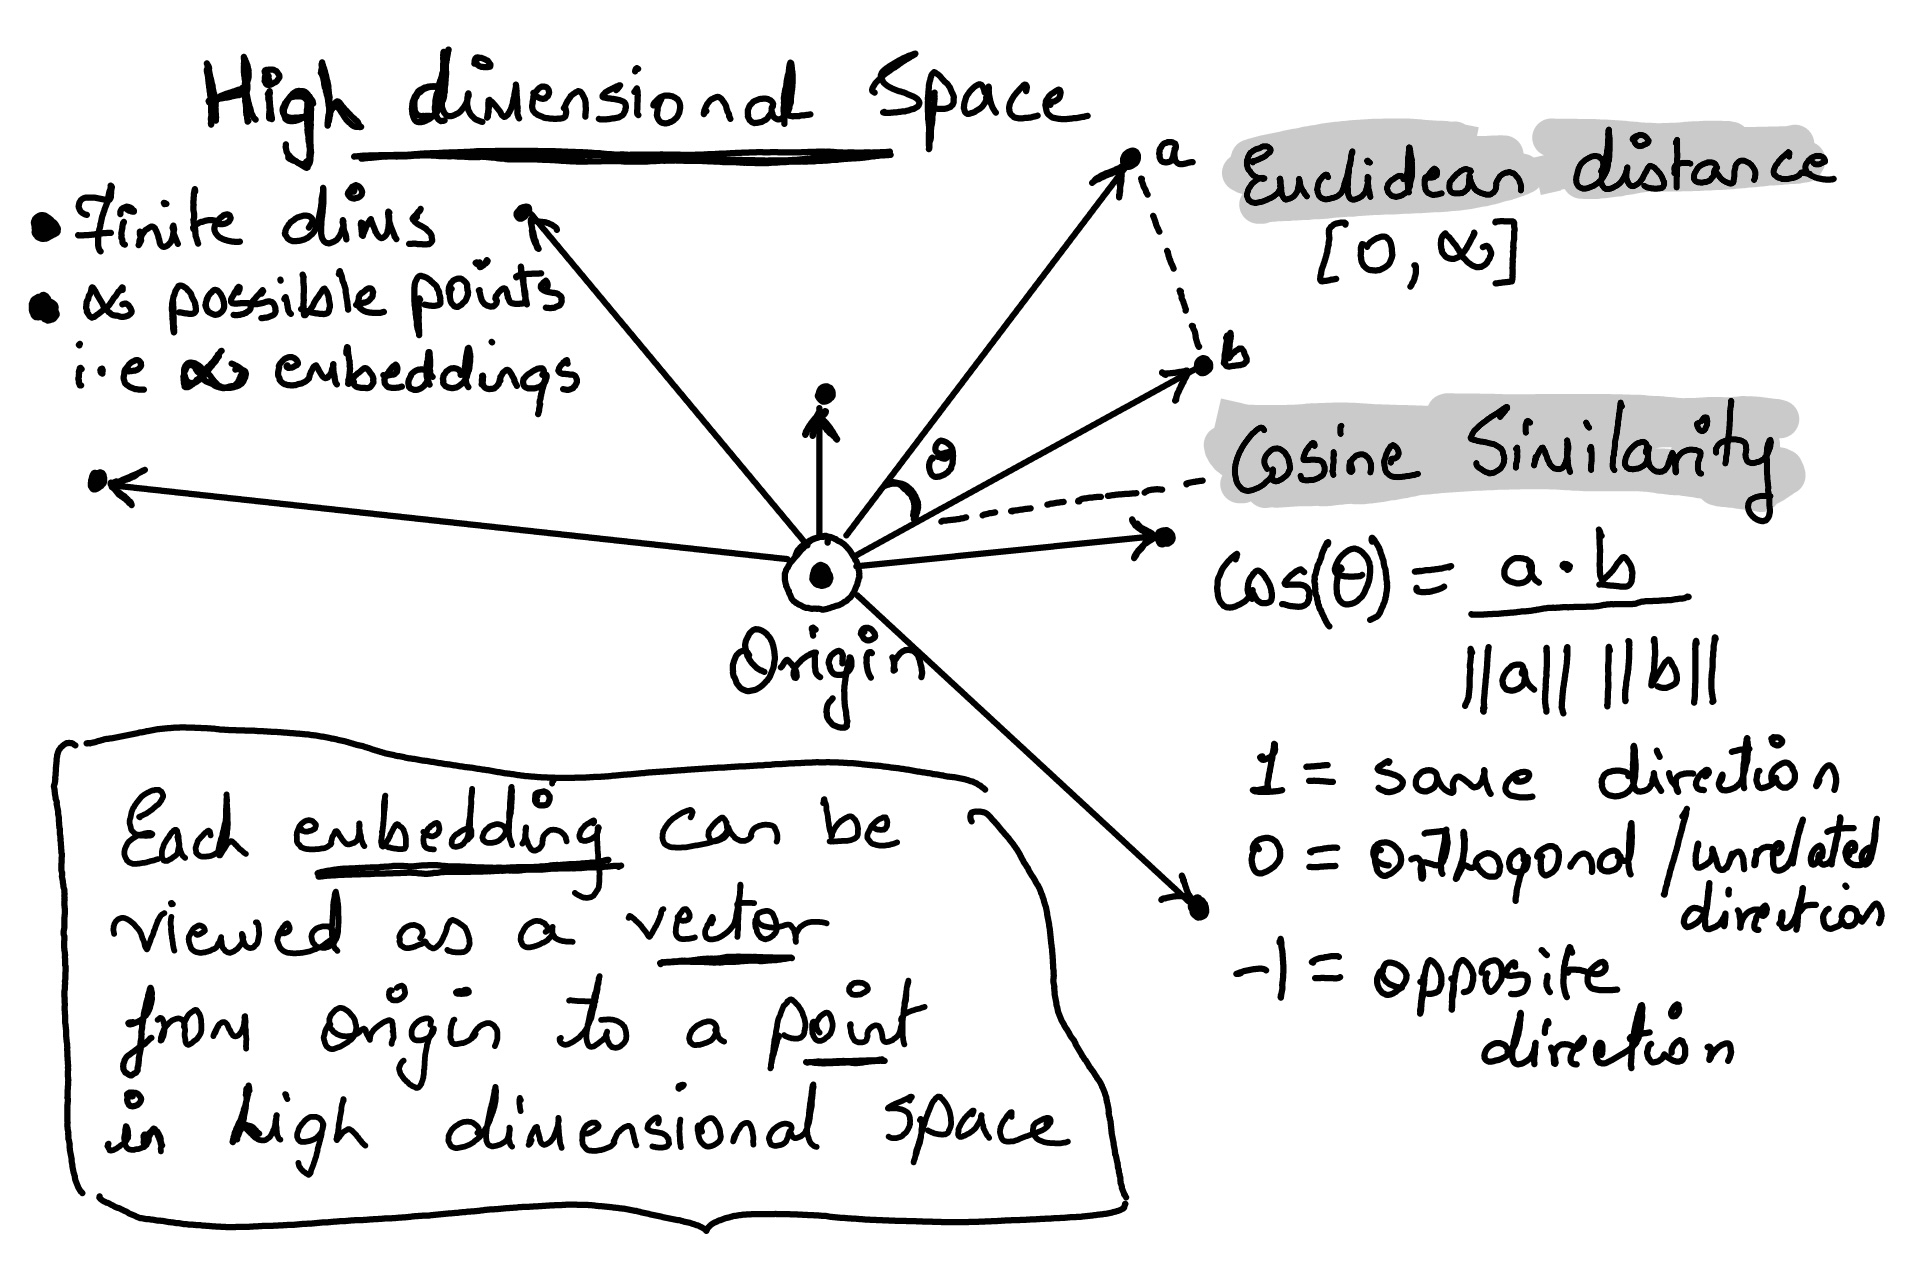 High dimensional Space
• Finite dims
• ∞ possible points
i.e ∞ embeddings
a
b
θ
Origin
Euclidean distance
[0, ∞]
Cosine Similarity
Cos(θ) = a · b
||a|| ||b||
1 = same direction
0 = orthogonal / unrelated
direction
-1 = opposite
direction
Each embedding can be
viewed as a vector
from origin to a point
in high dimensional space